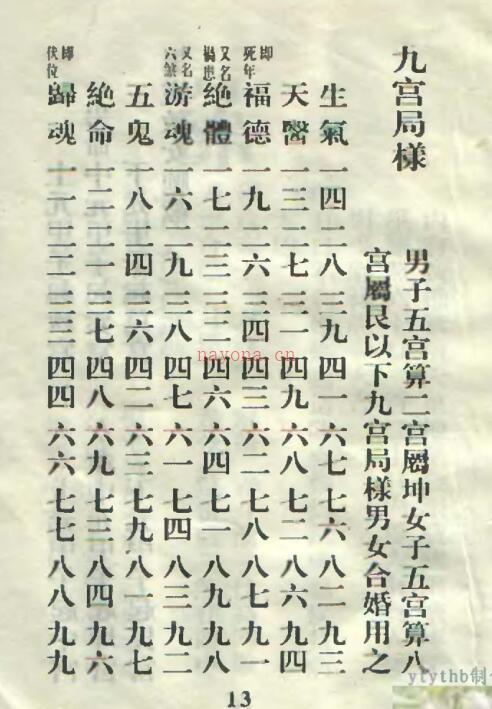 九宫局樣
男子五宫算二宫屬坤女子五宫算八
宫屬艮以下九宫局樣男女合婚用之
生氣一四二八三九四一六七七六八二九三
天醫一三二七三一四九六八七二八六九四
即死年
福德一九二六三四四三六二七八八七九一
又名禍患
絕體一七二三三二四六六四七一八九九八
又名六煞
游魂一六二九三八四七六一七四八三九二
五鬼一八二四三六四二六三七九八一九七
絕命一二二一三七四八六九七三八四九六
即伏位
歸魂一一二二三三四四六六七七八八九九
nayona.cn
13
yfythb制